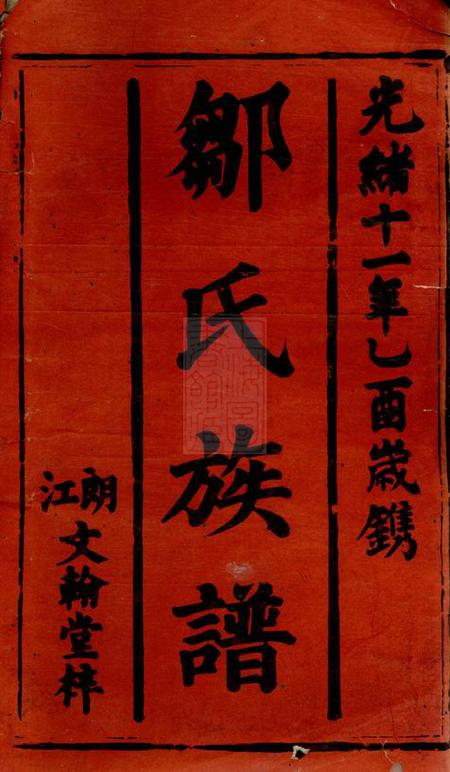 光緒十一年乙酉歲鐫
鄒氏族譜
朗江文翰堂梓